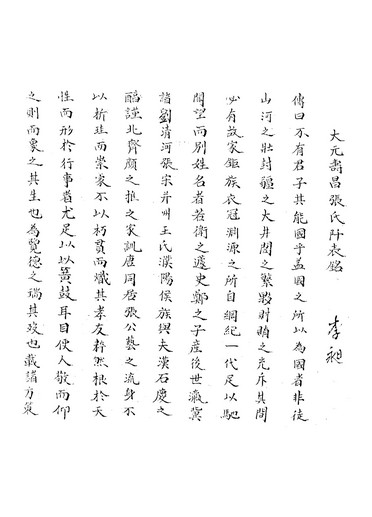 大元壽昌張氏阡表銘　李昶
傳曰不有君子其能國乎蓋國之所以為國者非徒
山河之壯封疆之大井閭之繁夥財賄之充斥其間
必有故家鉅族衣冠淵源之所自綱紀一代足以馳
聞望而別姓名者若衛之蘧史鄭之子產後世瀛冀
諸劉清河張宋幷州王氏濮陽侯族與夫漢石慶之
醇謹北齊顏之推之家訓唐同居張公藝之流身不
以析珪而崇家不以朽貫而熾其孝友幹然根於天
性而形於行事者尤足以以簧鼓耳目使人敬而仰
之則而象之其生也為覽德之瑞其歿也載諸方策